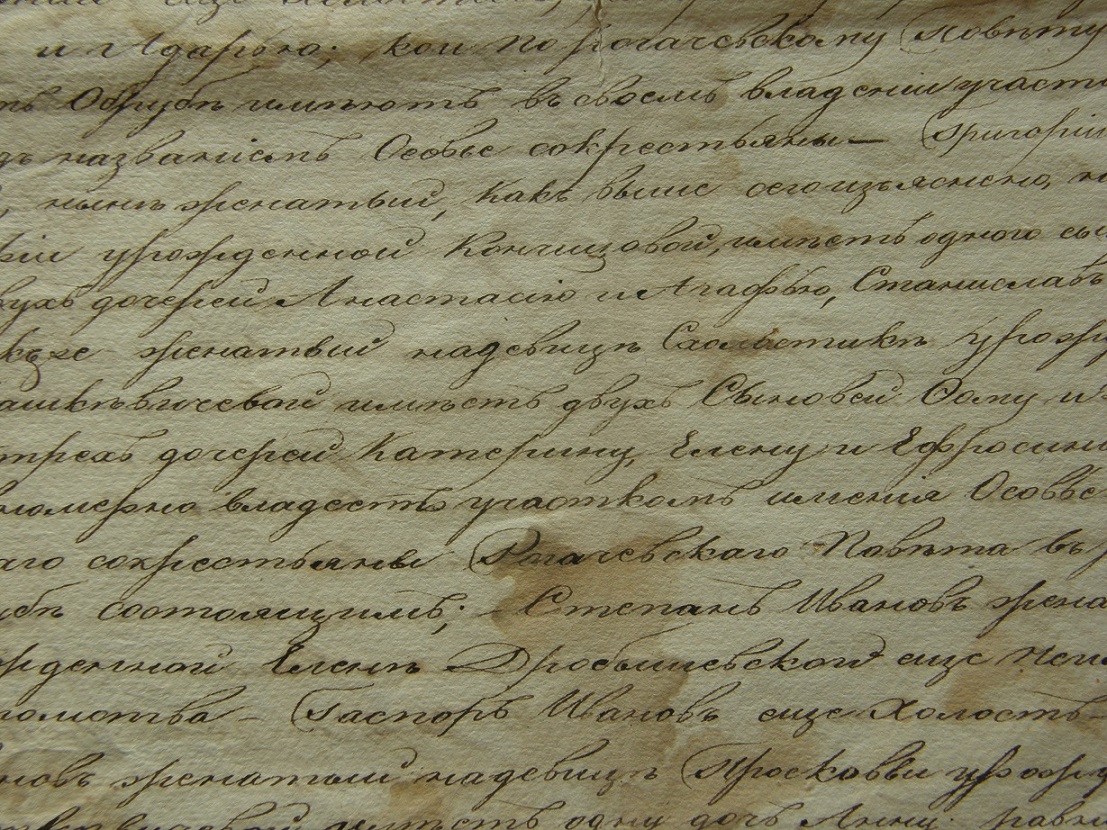 и Дарью; кои по рогачевскому Повѣту
Обрубѣ имѣютъ въ своемъ владении участ
названіемъ Особье сокрестьяны — Григорій
нынѣ женатый, какъ выше сего изъяснено, н
урожденной Кончицовой, имѣетъ одного сы
вухъ дочерей Анастасію и Агафью, Станиславъ
женатый на девицѣ Схоластикѣ урож
имѣетъ двухъ Сыновей Ѳому и
трехъ дочерей Катерину, Елену и Ефросинь
номерно владеетъ участкомъ имения Особье
аго сокрестьяны Рогачевскаго Повѣта въ
убѣ состоящимъ; — Степанъ Ивановъ жена
жденной Еленѣ Дробышевской еще неим
томства — Гаспоръ Ивановъ еще Холостъ —
новъ женатый на девицѣ Просковьи урожд
имѣетъ одну дочь Анну.